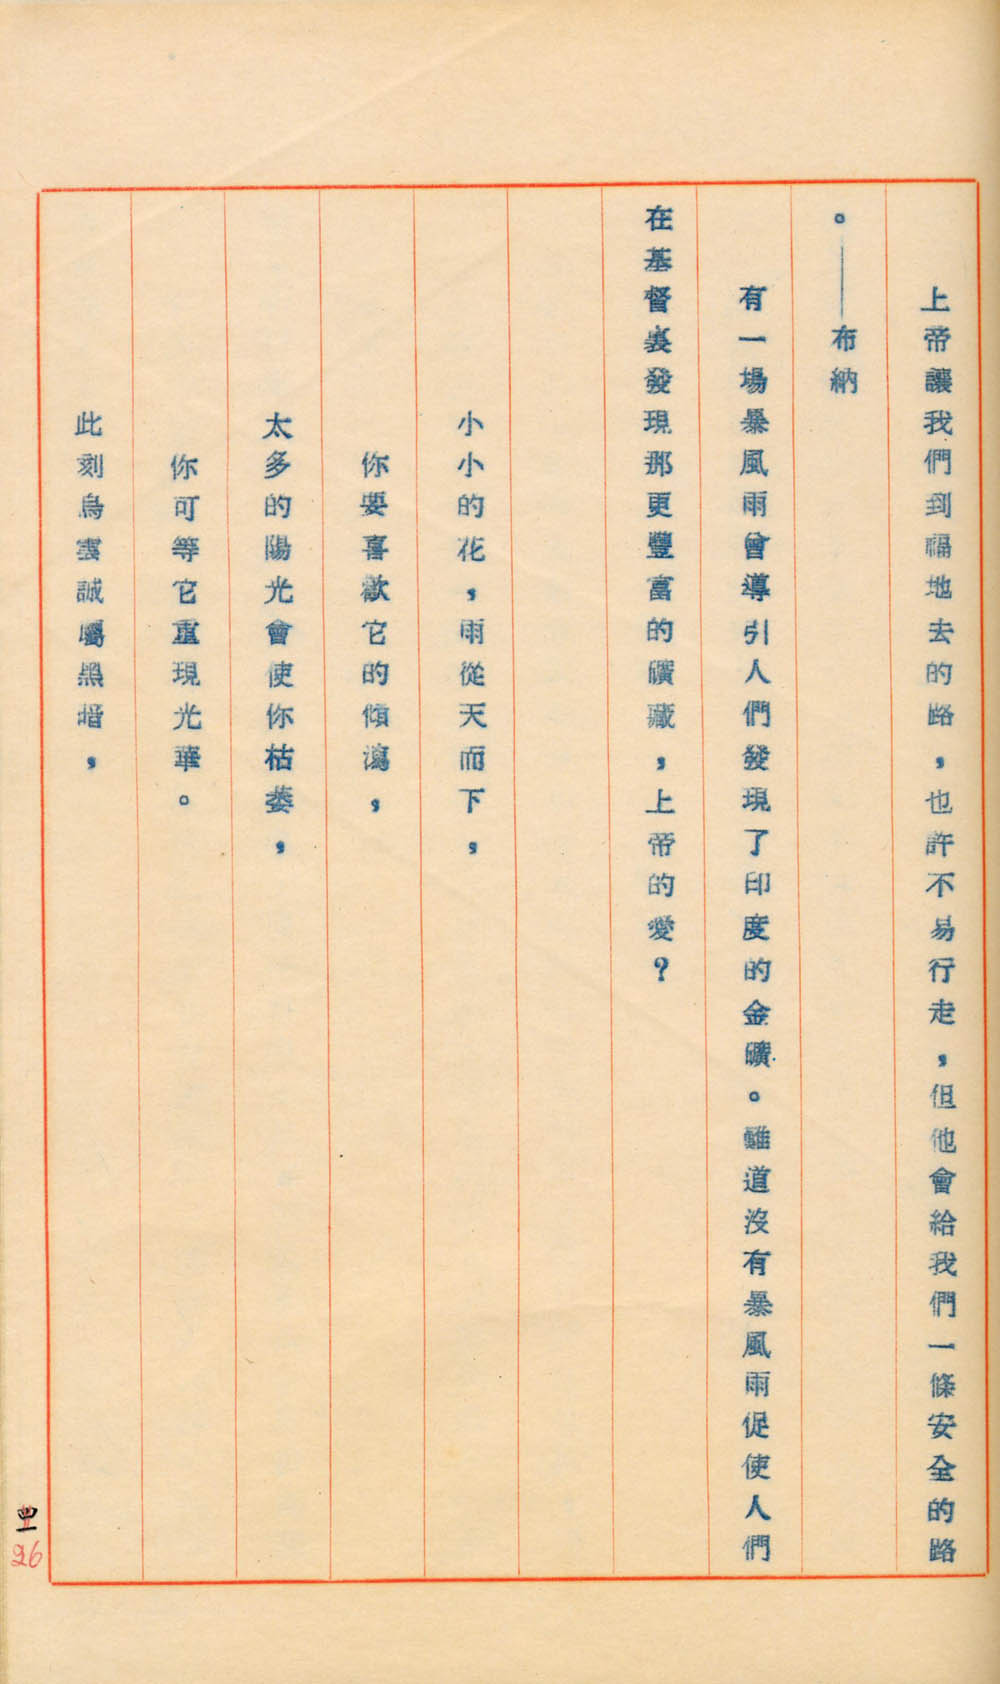 上帝讓我們到福地去的路，也許不易行走，但他會給我們一條安全的路
。——布納
有一場暴風雨曾導引人們發現了印度的金礦。難道沒有暴風雨促使人們
在基督裏發現那更豐富的礦藏，上帝的愛？
小小的花，雨從天而下，
你要喜歡它的傾瀉，
太多的陽光會使你枯萎，
你可等它重現光華。
此刻烏雲誠屬黑暗，
26